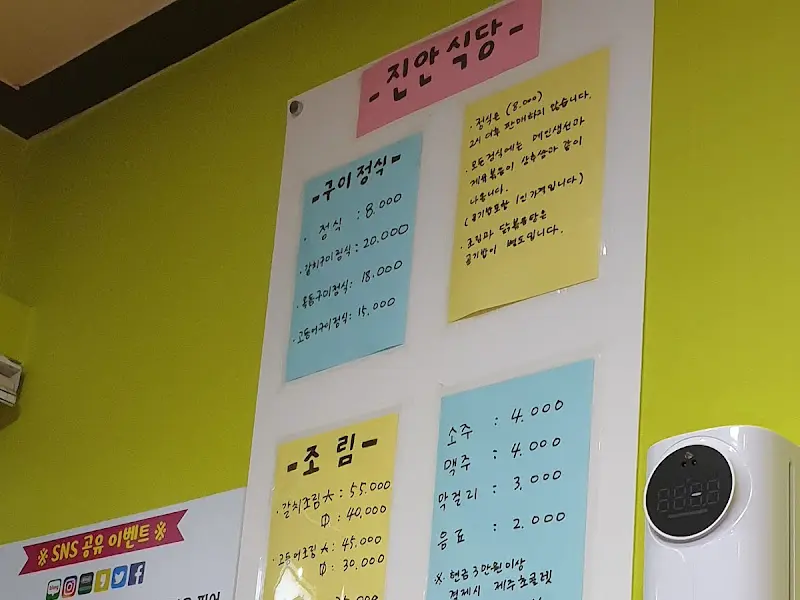 -진안식당-
-구이정식-
· 정식 : 8.000
· 갈치구이정식 : 20.000
· 옥돔구이정식 : 18.000
· 고등어구이정식 : 15,000
· 정식은 (8.000)
2시 이후 판매하지 않습니다.
· 모든정식에는 메인생선과
제육볶음이 상추쌈과 같이
나옵니다.
(공기밥포함 1인 가격입니다)
· 조림과 닭볶음탕은
공기밥이 별도입니다.
-조림-
· 갈치조림 大 : 55.000
中 : 40,000
· 고등어조림 大 : 45,000
中 : 30,000
소주 : 4.000
맥주 : 4.000
막걸리 : 3,000
음료 : 2.000
※ 현금 3만원이상
결제시 제주초콜렛
※ SNS 공유 이벤트 ※